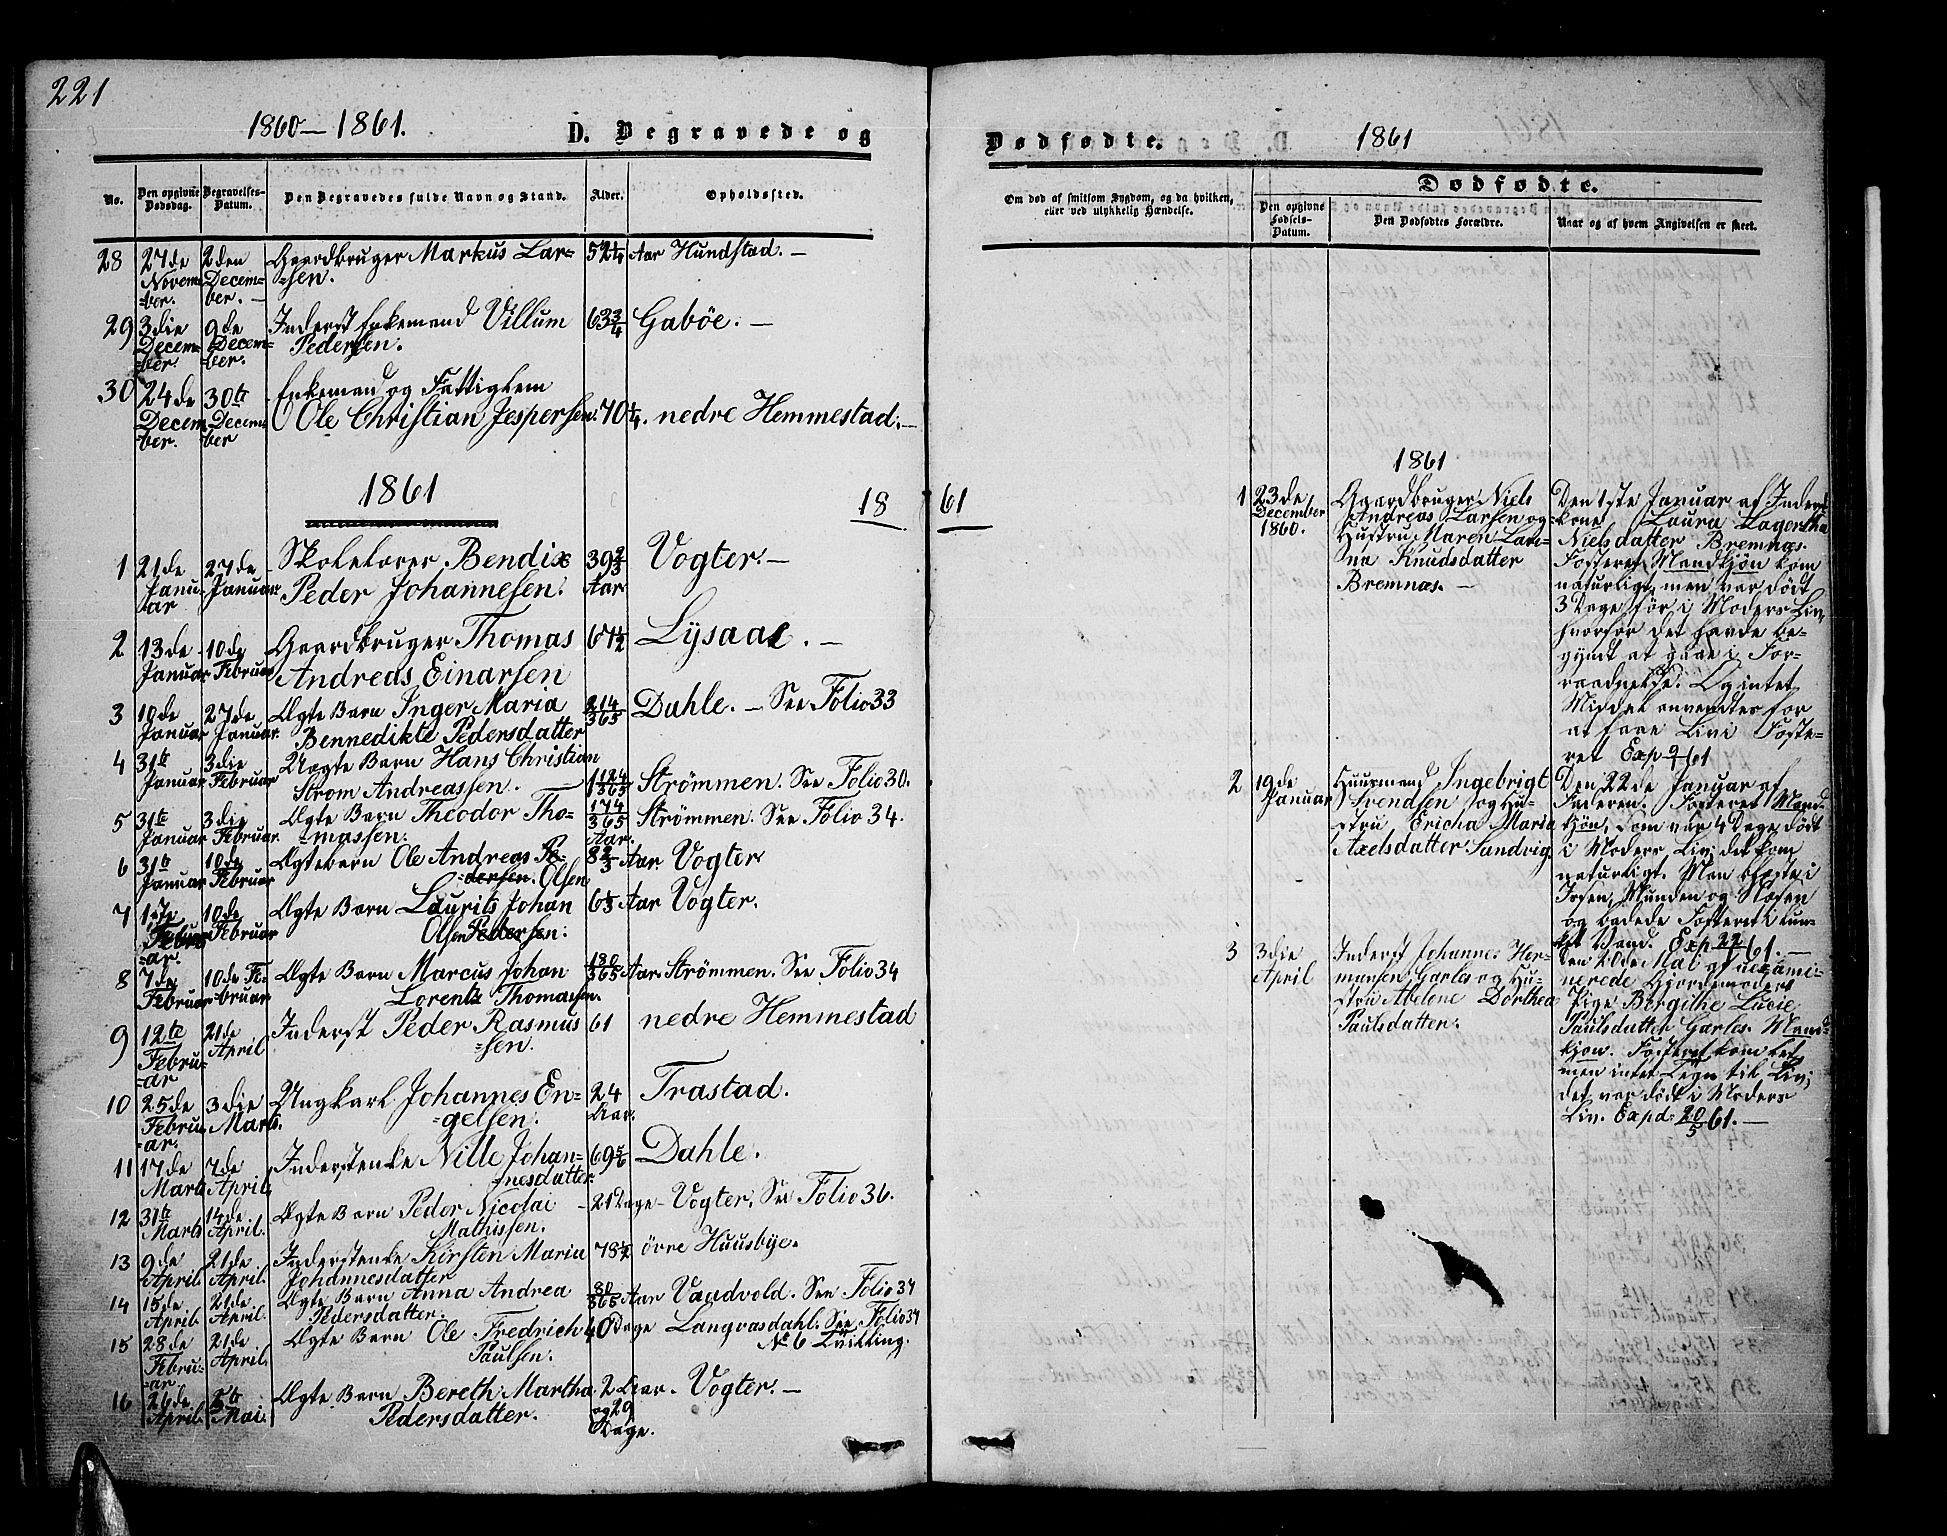 221
1860–1861. D. Begravede og
No. Den opgivne Dødsdag. Begravelses-Datum. Den Begravedes fulde Navn og Stand. Alder. Opholdssted.
28 27de November. 2den December. – Gaardbruger Markus Larsen. 52 1/4 Aar Hundstad. –
29 3die December. 9de December. Inderst Enkemand Villum Pedersen. 63 3/4 Gabøe. –
30 24de December. 30te December Enkemand og Fattiglem Ole Christian Jespersen. 70 1/4. nedre Hemmestad. –
1861
18
1 21de Januar 27de Januar. Skolelærer Bendix Peder Johannesen. 39 2/3 Aar Vogter. –
2 13de Januar 10de Februar Gaardbruger Thomas Andreas Einarsen 67 1/2 Lysaae. –
3 10de Januar 27de Januar. Ægte Barn Inger Maria Bennedikte Pedersdatter 214/365 Dahle. – See Folio 33
4 31te Januar 3die Februar Uægte Barn Hans Christian Strøm Andreassen. 1 124/365 Strømmen. See Folio 30.
5 31te Januar 3die Februar. Ægte Barn Theodor Thomassen. 174/365 Aar. Strømmen. See Folio 34.
6 31te Januar 10de Februar Ægtebarn Ole Andreas Pedersen. Olsen 8 2/3 Aar Vogter
7 1ste Februar. 10de Februar Ægte Barn Laurits Johan Olsen Pedersen. 6 1/3 Aar Vogter.
8 7de Februar 10de Februar Ægte Barn Marcus Johan Lorentz Thomassen. 180/365 Aar. Strømmen. See Folio 34
9 12te Februar 21de April Inderst Peder Rasmussen. 61 nedre Hemmestad
10 25de Februar. 3die Marts. Ungkarl Johannes Engelsen. 24 Aar. Trastad.
11 17de Marts 7de April. Inderstenke Nille Johannesdatter. 69 5/6 Dahle.
12 31te Marts 14de April. Ægte Barn Peder Nicolai Mathissen. 21 Dage – Vogter. See Folio 36.
13 9de April. 21de April. Inderstenke Kirsten Maria Johannesdatter 78 1/2 øvre Huusbye.
14 15de April. 21de April. Ægte Barn Anna Andrea Pedersdatter. 80/365 Aar Vandvold. See Folio 34
15 28de Februar 21de April. Ægte Barn Ole Fredrich Paulsen. 40 Dage Langvasdahl. See Folio 34 No 6 Tvilling.
16 26de April. 5te Mai. Ægte Barn Bereth Martha Pedersdatter. 2 Aar og 29 Dage. Vogter. –
Dødfødte. 1861
Om død af smitsom Sygdom, og da hvilken, eller ved ulykkelig Hændelse.
Dødfødte.
Den opgivne Fødsels-Datum. Den Dødfødtes Forældre. Naar og af hvem Angivelsen er skeet.
61
1861
1 23de December 1860. Gaardbruger Niels Andreas Larsen og Hustru Maren Larsina Knudsdatter Bremnæs. –
Den 1ste Januar af Inderstkone Laura Lagertha
Nielsdatter Bremnæs.
Fosteret Mandkjøn kom
naturligt, men var dødt
3 Dage før i Moders Liv,
hvorfor det havde be-
gyndt at gaae i For-
raadnelse. Og intet
Middel anvendtes for
at faae Liv i Foste-
ret
2 19de Januar Huusmand Ingebrigt Svendsen og Hustru Ericha Maria Axelsdatter Sandvig.
Den 22de Januar af
Faderen. Fosteret Mand-
kjøn, som var 4 Dage dødt
i Moders Liv; det kom
naturligt. Man blæste i
Munden og Næsen
og badede Fosteret i lun-
ket Vand. Exp 22/1 61. –
3 3die April Inderst Johannes Hermansen Garles og Hustru Abelone Dorthea Paulsdatter.
Den 20de Mai af uexami-
nerede Gjordemoder
Pige Bergithe Lucie
Paulsdatter Garles. Mand-
kjøn. Fosteret kom let,
men intet Tegn til Liv;
det var dødt i Moders
Liv. Expd. 20/5 61. –